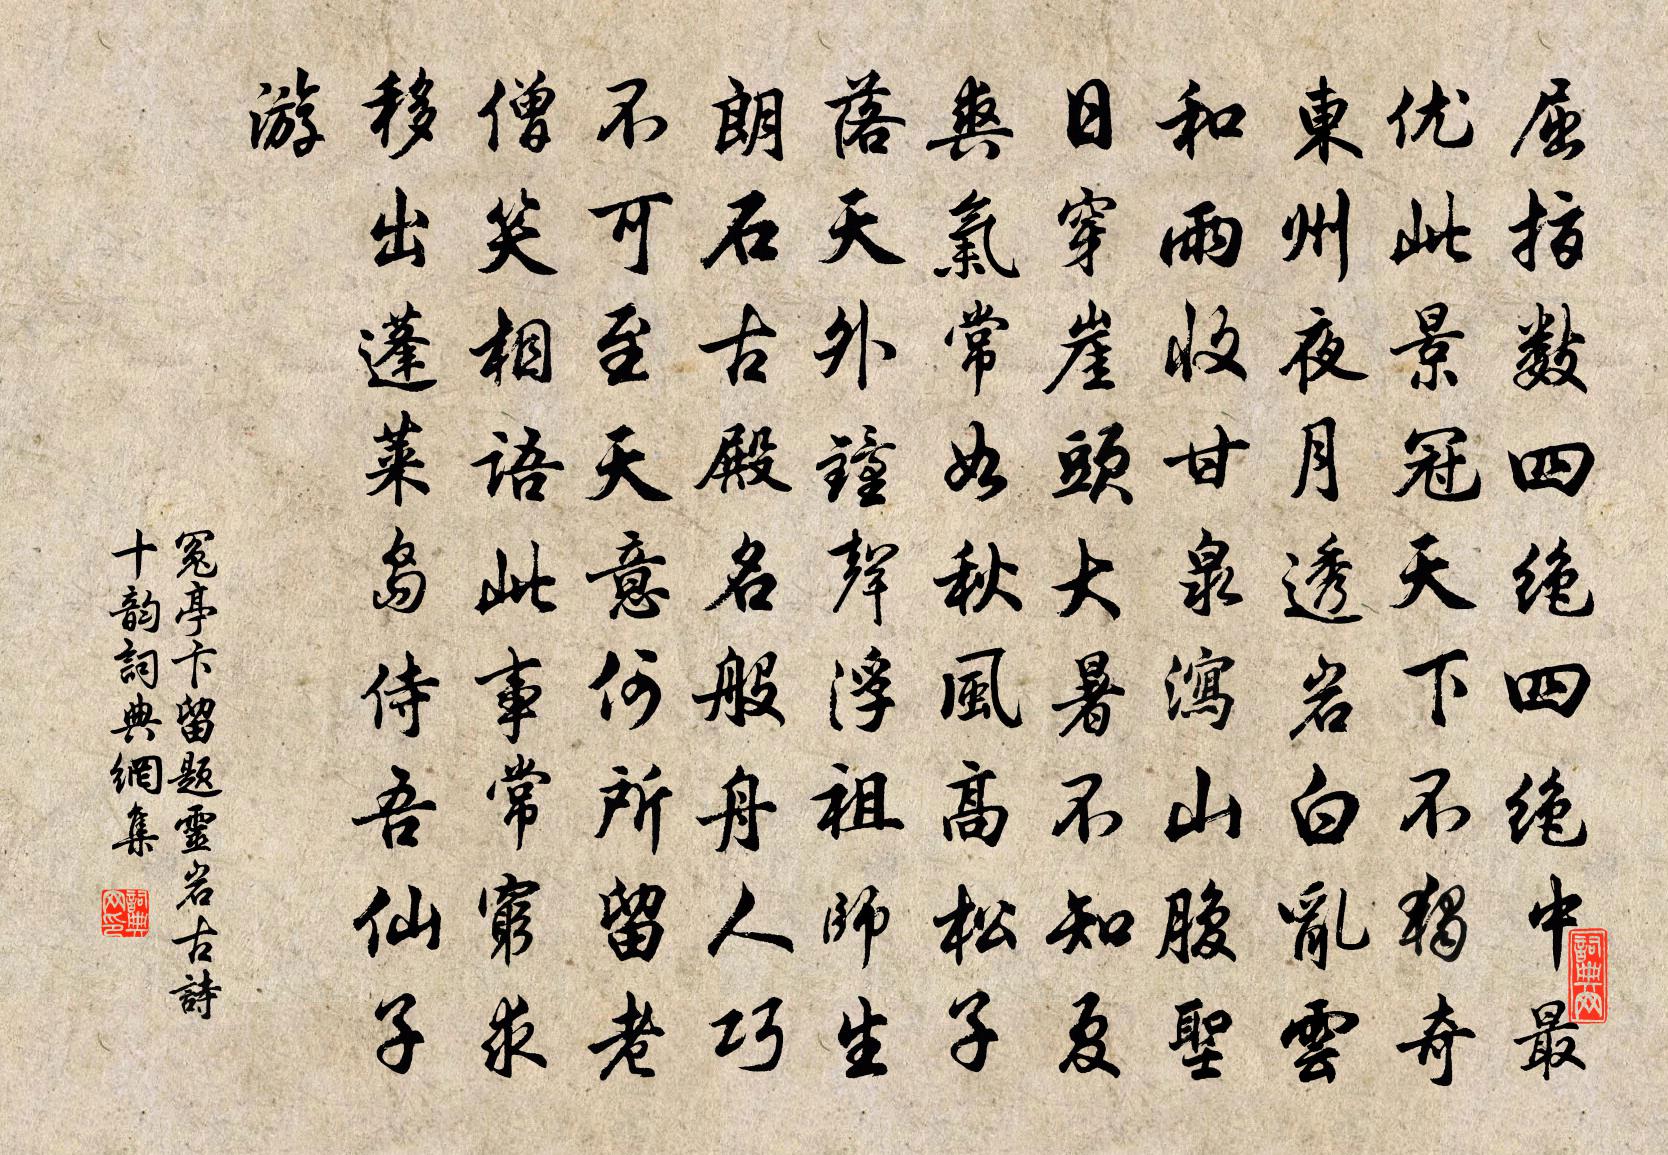 屈指数四绝四绝中最
优此景冠天下不独奇
東州夜月透岩白亂雲
和雨收甘泉瀉山腹聖
日穿崖頭大暑不知夏
爽氣常如秋風高松子
落天外鐘聲浮祖師生
朗石古殿名般舟人巧
不可至天意何所留老
僧笑相語此事常窮求
移出蓬莱島侍吾仙子
游
冤亭卞留题靈岩古詩
十韵詞典網集
詞典网
詞典网印